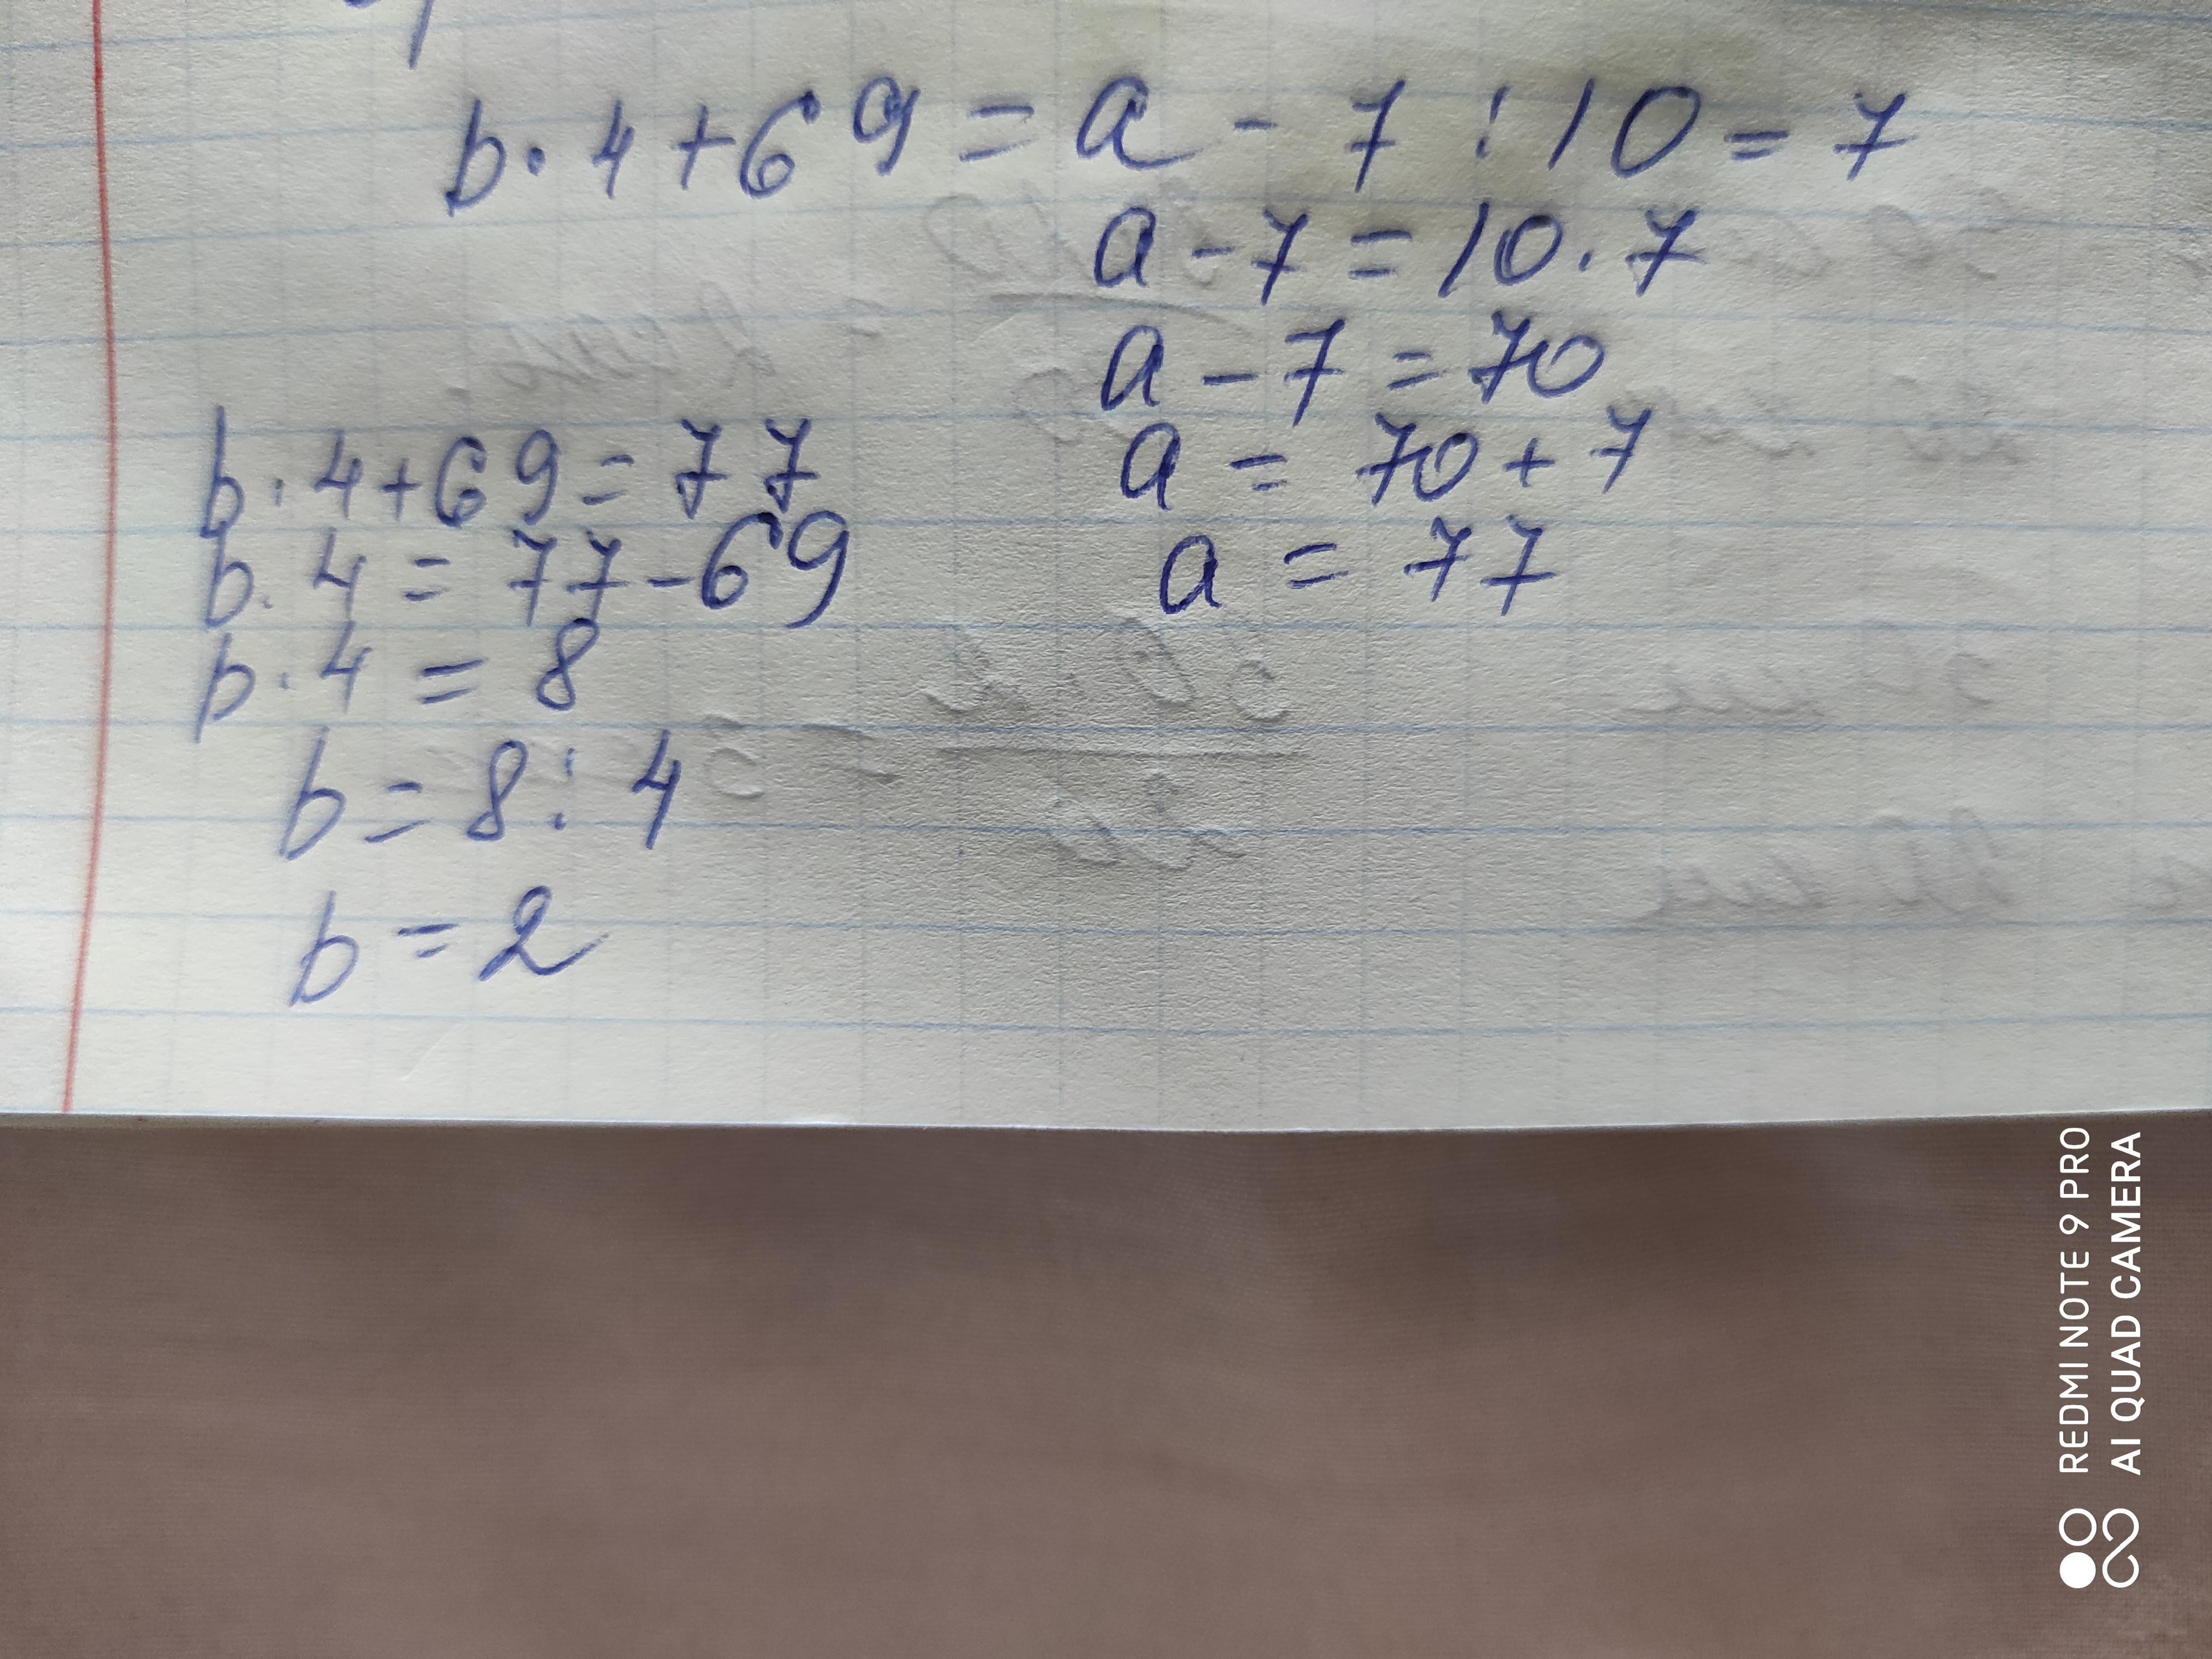 b · 4 + 69 = a - 7 : 10 = 7
a - 7 = 10 · 7
a - 7 = 70
a = 70 + 7
a = 77
b · 4 + 69 = 77
b · 4 = 77 - 69
b · 4 = 8
b = 8 : 4
b = 2
REDMI NOTE 9 PRO
AI QUAD CAMERA